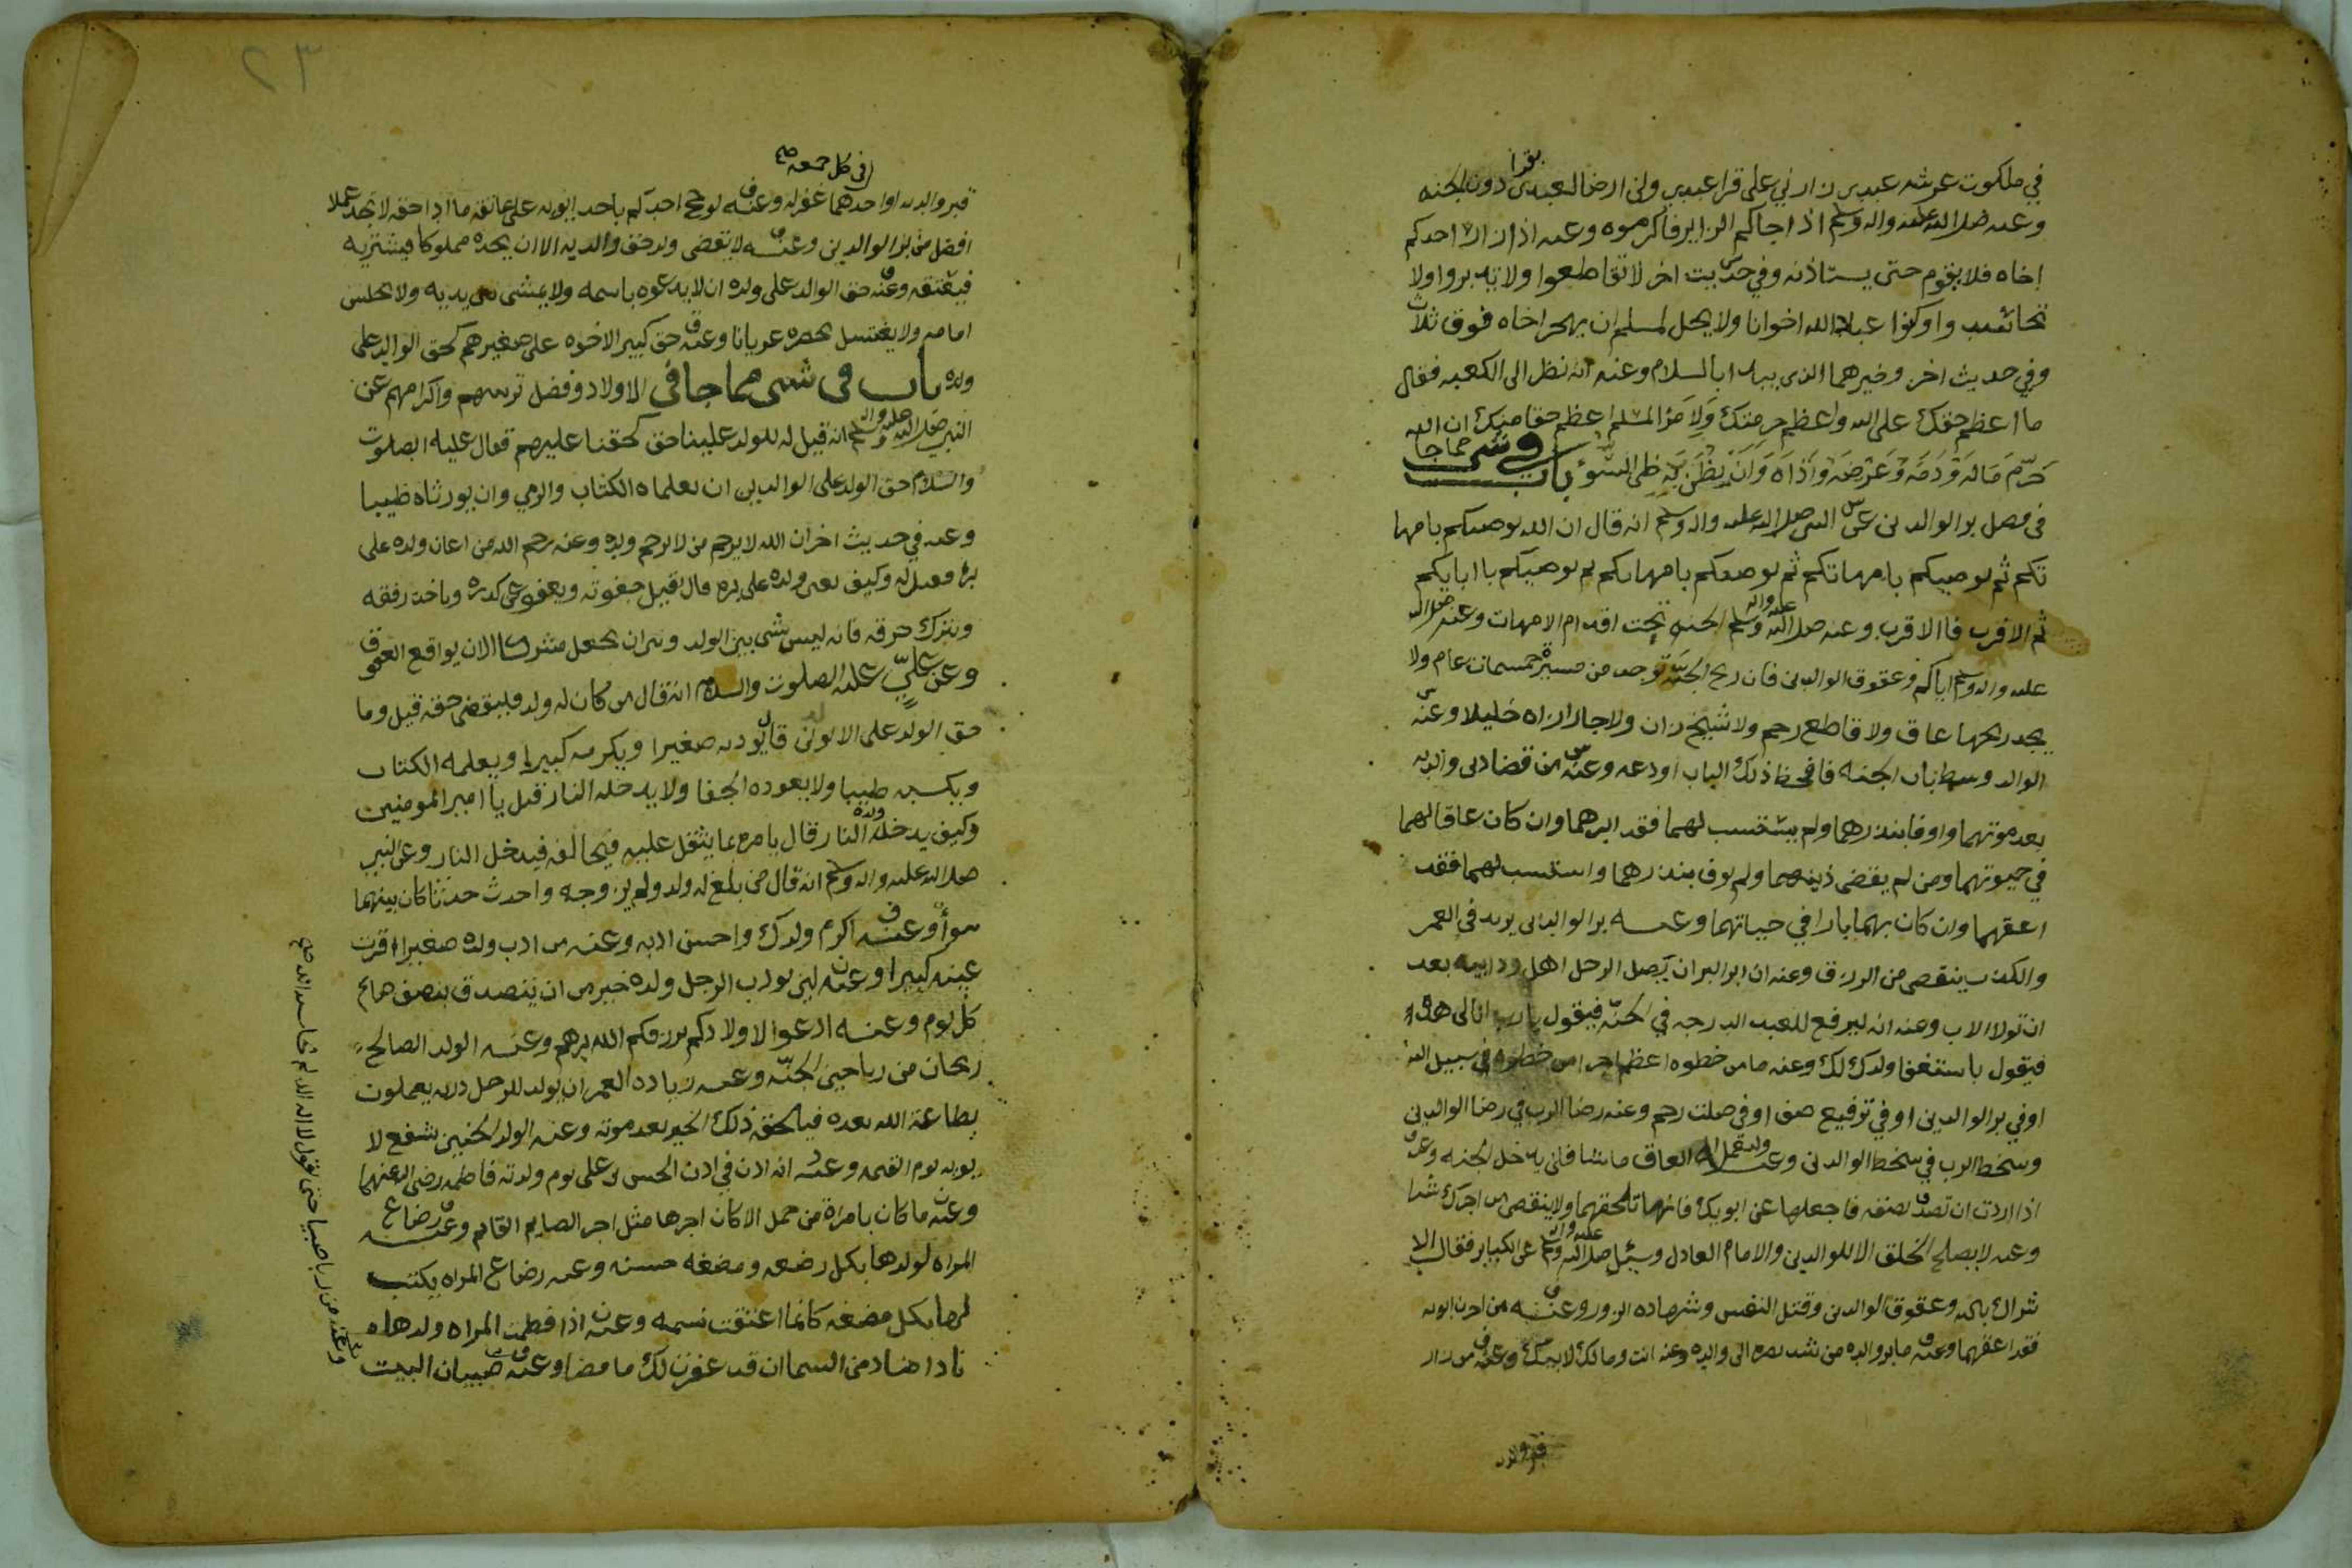 في ملكوت عرشه عبدي زارني علي قرا عبدي ولن ارضا لعبدي بقرا دون الجنه
وعنه صلى الله عليه واله وسلم اذا جاكم الزاير فاكرموه وعنه اذا زار احدكم
اخاه فلا يقوم حتى يستاذنه وفي حديث اخر لا تقاطعوا ولا تدبروا ولا
تحاسدوا وكونوا عباد الله اخوانا ولا يحل لمسلم ان يهجر اخاه فوق ثلاث
وفي حديث اخر وخيرهما الذي يبدا بالسلام وعنه انه نظر الى الكعبه فقال
ما اعظم حقك على الله واعظم حرمتك ولامر المسلم اعظم حقا منك ان الله
حَرّم مَاله وَدَمه وَعرضه وَاَذاه وَاَن يظن به ظن السّوء باب في شي مما جا
في فضل بر الوالدين عن النبي صلى الله عليه واله وسلم انه قال ان الله يوصيكم بامها
تكم ثم يوصيكم بامهاتكم ثم يوصيكم بامهاتكم ثم يوصيكم بابايكم
ثم الاقرب فالاقرب وعنه صلى الله عليه واله وسلم الجنه تحت اقدام الامهات وعنه صلى الله
عليه واله وسلم اياكم وعقوق الوالدين فان ريح الجنّه توجد من مسيرة خمسمائة عام ولا
يجد ريحها عاق ولا قاطع رحم ولا شيخ زان ولا جار ازاره خليلا وعنه
الوالد وسط باب الجنه فاحفظ ذلك الباب او دعه وعنه من قضا دين والديه
بعد موتهما واوفا بنذرهما ولم يستسب لهما فقد ابرهما وان كان عاقا لهما
في حيوتهما ومن لم يقضي دينهما ولم يوف بنذرهما واستسب لهما فقد
اعقهما وان كان بهما بارا في حياتهما وعنه بر الوالدين يزيد في العمر
والكذب ينقص من الرزق وعنه ان ابر البر ان يصل الرجل اهل ود ابيه بعد
ان تولا الاب وعنه انه ليرفع للعبد الدرجه في الجنّه فيقول يا رب انا لي هذا
فيقول باستغفار ولدك لك وعنه ما من خطوه اعظم اجرا من خطوه في سبيل الله
او في بر الوالدين او في ترفيع صف او في صلت رحم وعنه رضا الرب في رضا الوالدين
وسخط الرب في سخط الوالدين وعنه وليعمل العاق ما شا فلن يدخل الجنه وعنه
اذا اردت ان تصدق بصدقه فاجعلها عن ابويك فانهما تلحقهما ولا ينقص من اجرك شيا
وعنه لا يصلح الخلق الا للوالدين والامام العادل وسئل صلى الله عليه واله وسلم عن الكباير فقال الا
شراك بالله وعقوق الوالدين وقتل النفس وشهاده الزور وعنه من احزن ابويه
فقد اعقهما وعنه ما بر والده من شد بصره الى والده وعنه انت ومالك لابيك وعنه من زار
قبر والديه
٢٣
قبر والديه او احدهما في كل جمعه صح غفر له وعنه لو حج احدكم باحد ابويه على عاتقه ما ادا حقه لا تجد عملا
افضل من بر الوالدين وعنه لا يقضي ولد حق والديه الا ان يجده مملوكا فيشتريه
فيعتقه وعنه حق الوالد على ولده ان لا يدعوه باسمه ولا يمشي بين يديه ولا يجلس
امامه ولا يغتسل بحضره عريانا وعنه حق كبير الاخوه على صغيرهم كحق الوالد على
ولده باب في شي مما جا في الاولاد وفضل تربيتهم واكرامهم عن
النبي صلى الله عليه واله وسلم انه قيل له للولد علينا حق كحقنا عليهم فقال عليه الصلوت
والسلام حق الولد على الوالدين ان يعلماه الكتاب والرمي وان يورثاه طيبا
وعنه في حديث اخر ان الله لا يرحم من لا يرحم ولده وعنه رحم الله من اعان ولده على
بره فقيل له وكيف يعين ولده على بره قال يقبل صفوته ويعفو عن كدره وياخذ رفقه
ويترك خرقه فانه ليس شي بين الولد وبين ان يجعل مشركا الا ان يواقع العقوق
وعن عليّ عليه الصلوت والسلام انه قال من كان له ولد فليقضي حقه قيل وما
حق الولد على الابوين قال يؤدبه صغيرا ويكرمه كبيرا ويعلمه الكتاب
ويكسبه طيبا ولا يعوده الجفا ولا يدخله النار قيل يا امير المومنين
وكيف يدخل ولده النار قال يامره بما يثقل عليه فيخالفه فيدخل النار وعن النبي
صلى الله عليه واله وسلم انه قال من بلغ له ولد ولم يزوجه واحدث حدثا كان بينهما
سوأ وعنه اكرم ولدك واحسن ادبه وعنه من ادب ولده صغيرا اقرت
عينه كبيرا وعنه لين يودب الرجل ولده خير من ان يتصدق بنصف صاع
كل يوم وعنه ادعوا لاولادكم يرزقكم الله برهم وعنه الولد الصالح
ريحان من رياحين الجنّه وعنه زياده العمر ان يولد للرجل ذريه يعملون
بطاعة الله بعده فيلحقه ذلك الخير بعد موته وعنه الولد الجنين شفع لا
بويه يوم القيمه وعنه انه اذن في اذن الحسن بن علي يوم ولدته فاطمه رضي الله عنهما
وعنه ما كان بامراة من حمل الا كان اجرها مثل اجر الصايم القايم وعنه رضاع
المراه لولدها بكل رضعه ومضغه حسنه وعنه رضاع المراه يكتب
لها بكل مضغه كانما اعتقت نسمه وعنه اذا فطمت المراه ولدها
نادا مناد من السما ان قد غفرت لك ما مضا وعنه صبيان البيت
وعنه من ربا صبيا حتى يقول لا اله الا الله لم يحاسبه الله صح